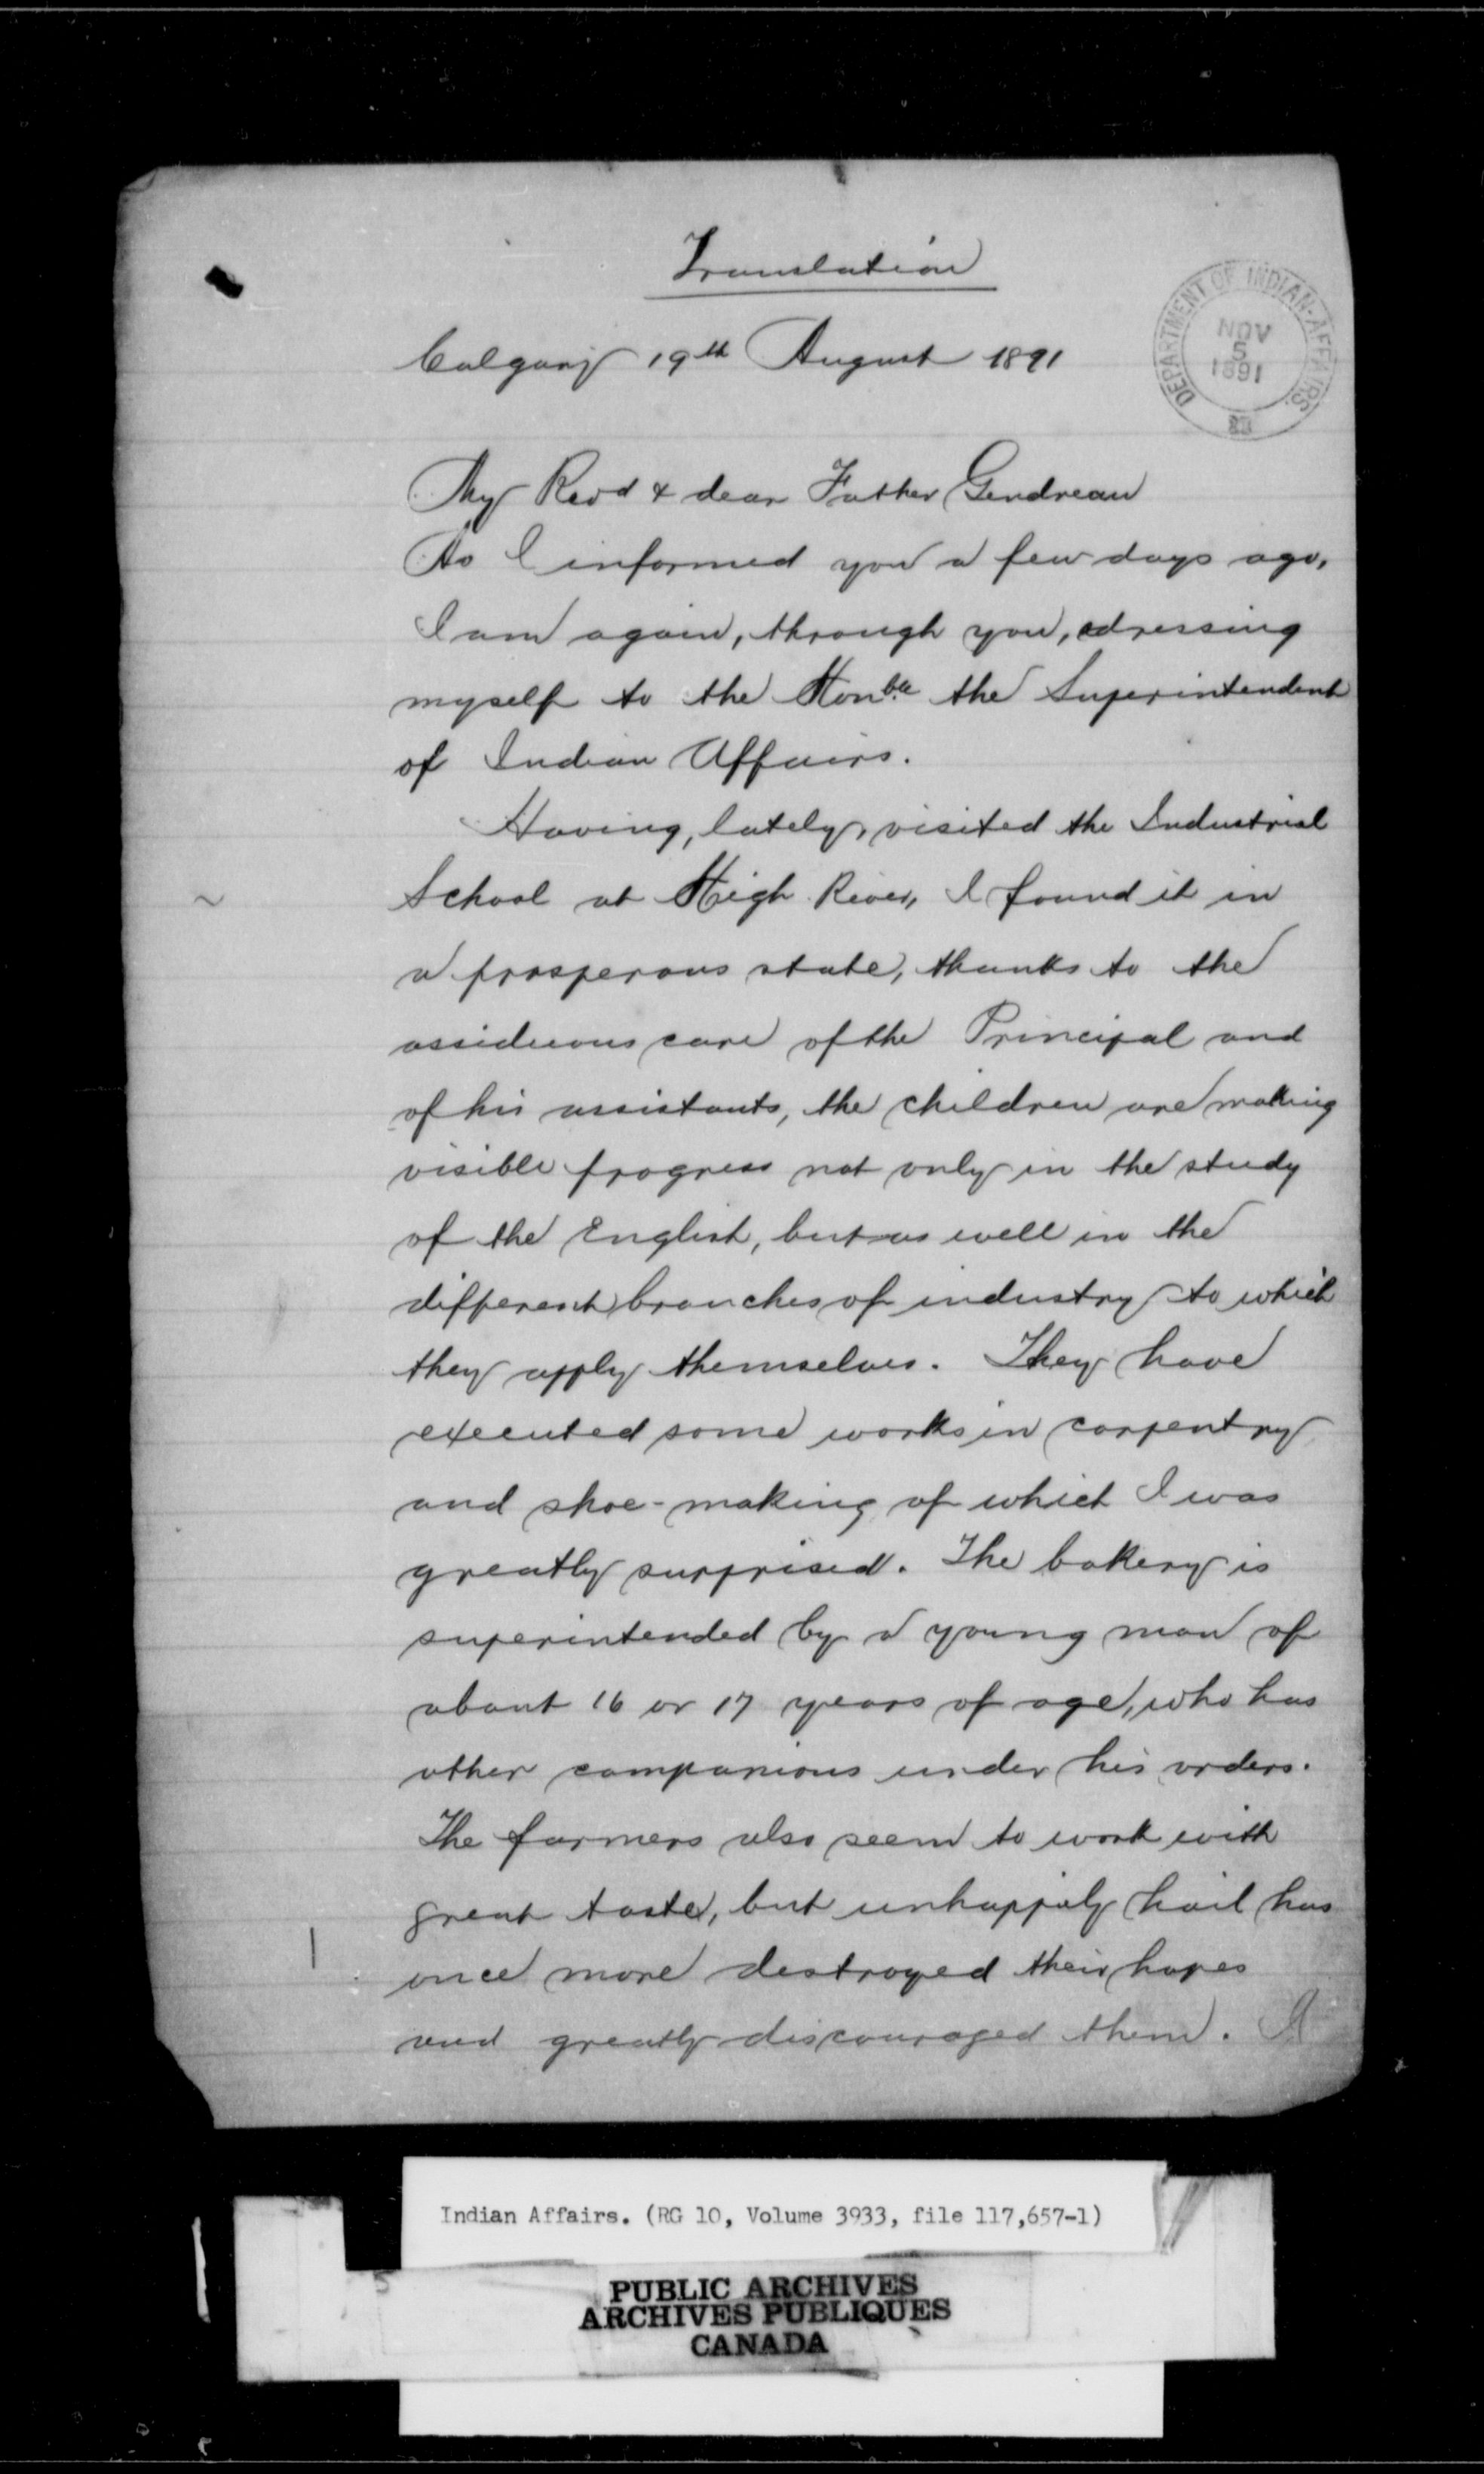 Translation
DEPARTMENT OF INDIAN-AFFAIRS.
NOV
5
1891
Calgary 19th August 1891
My Revd & dear Father Gendreau
As I informed you a few days ago,
I am again, through you, adressing
myself to the Honble the Superintendent
of Indian Affairs.
Having, lately, visited the Industrial
School at High River, I found it in
a prosperous state, thanks to the
assiduous care of the Principal and
of his assistants, the children are making
visible progress not only in the study
of the English, but as well in the
different branches of industry to which
they apply themselves. They have
executed some works in carpentry
and shoe-making of which I was
greatly surprised. The bakery is
superintended by a young man of
about 16 or 17 years of age, who has
other companions under his orders.
The farmers also seem to work with
great taste, but unhappily hail has
once more destroyed their hopes
and greatly discouraged them. I
Indian Affairs. (RG 10, Volume 3933, file 117,657-1)
PUBLIC ARCHIVES
ARCHIVES PUBLIQUES
CANADA